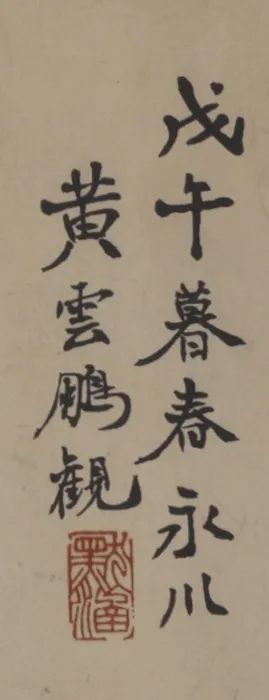 戊午暮春永川
黃雲鵬觀